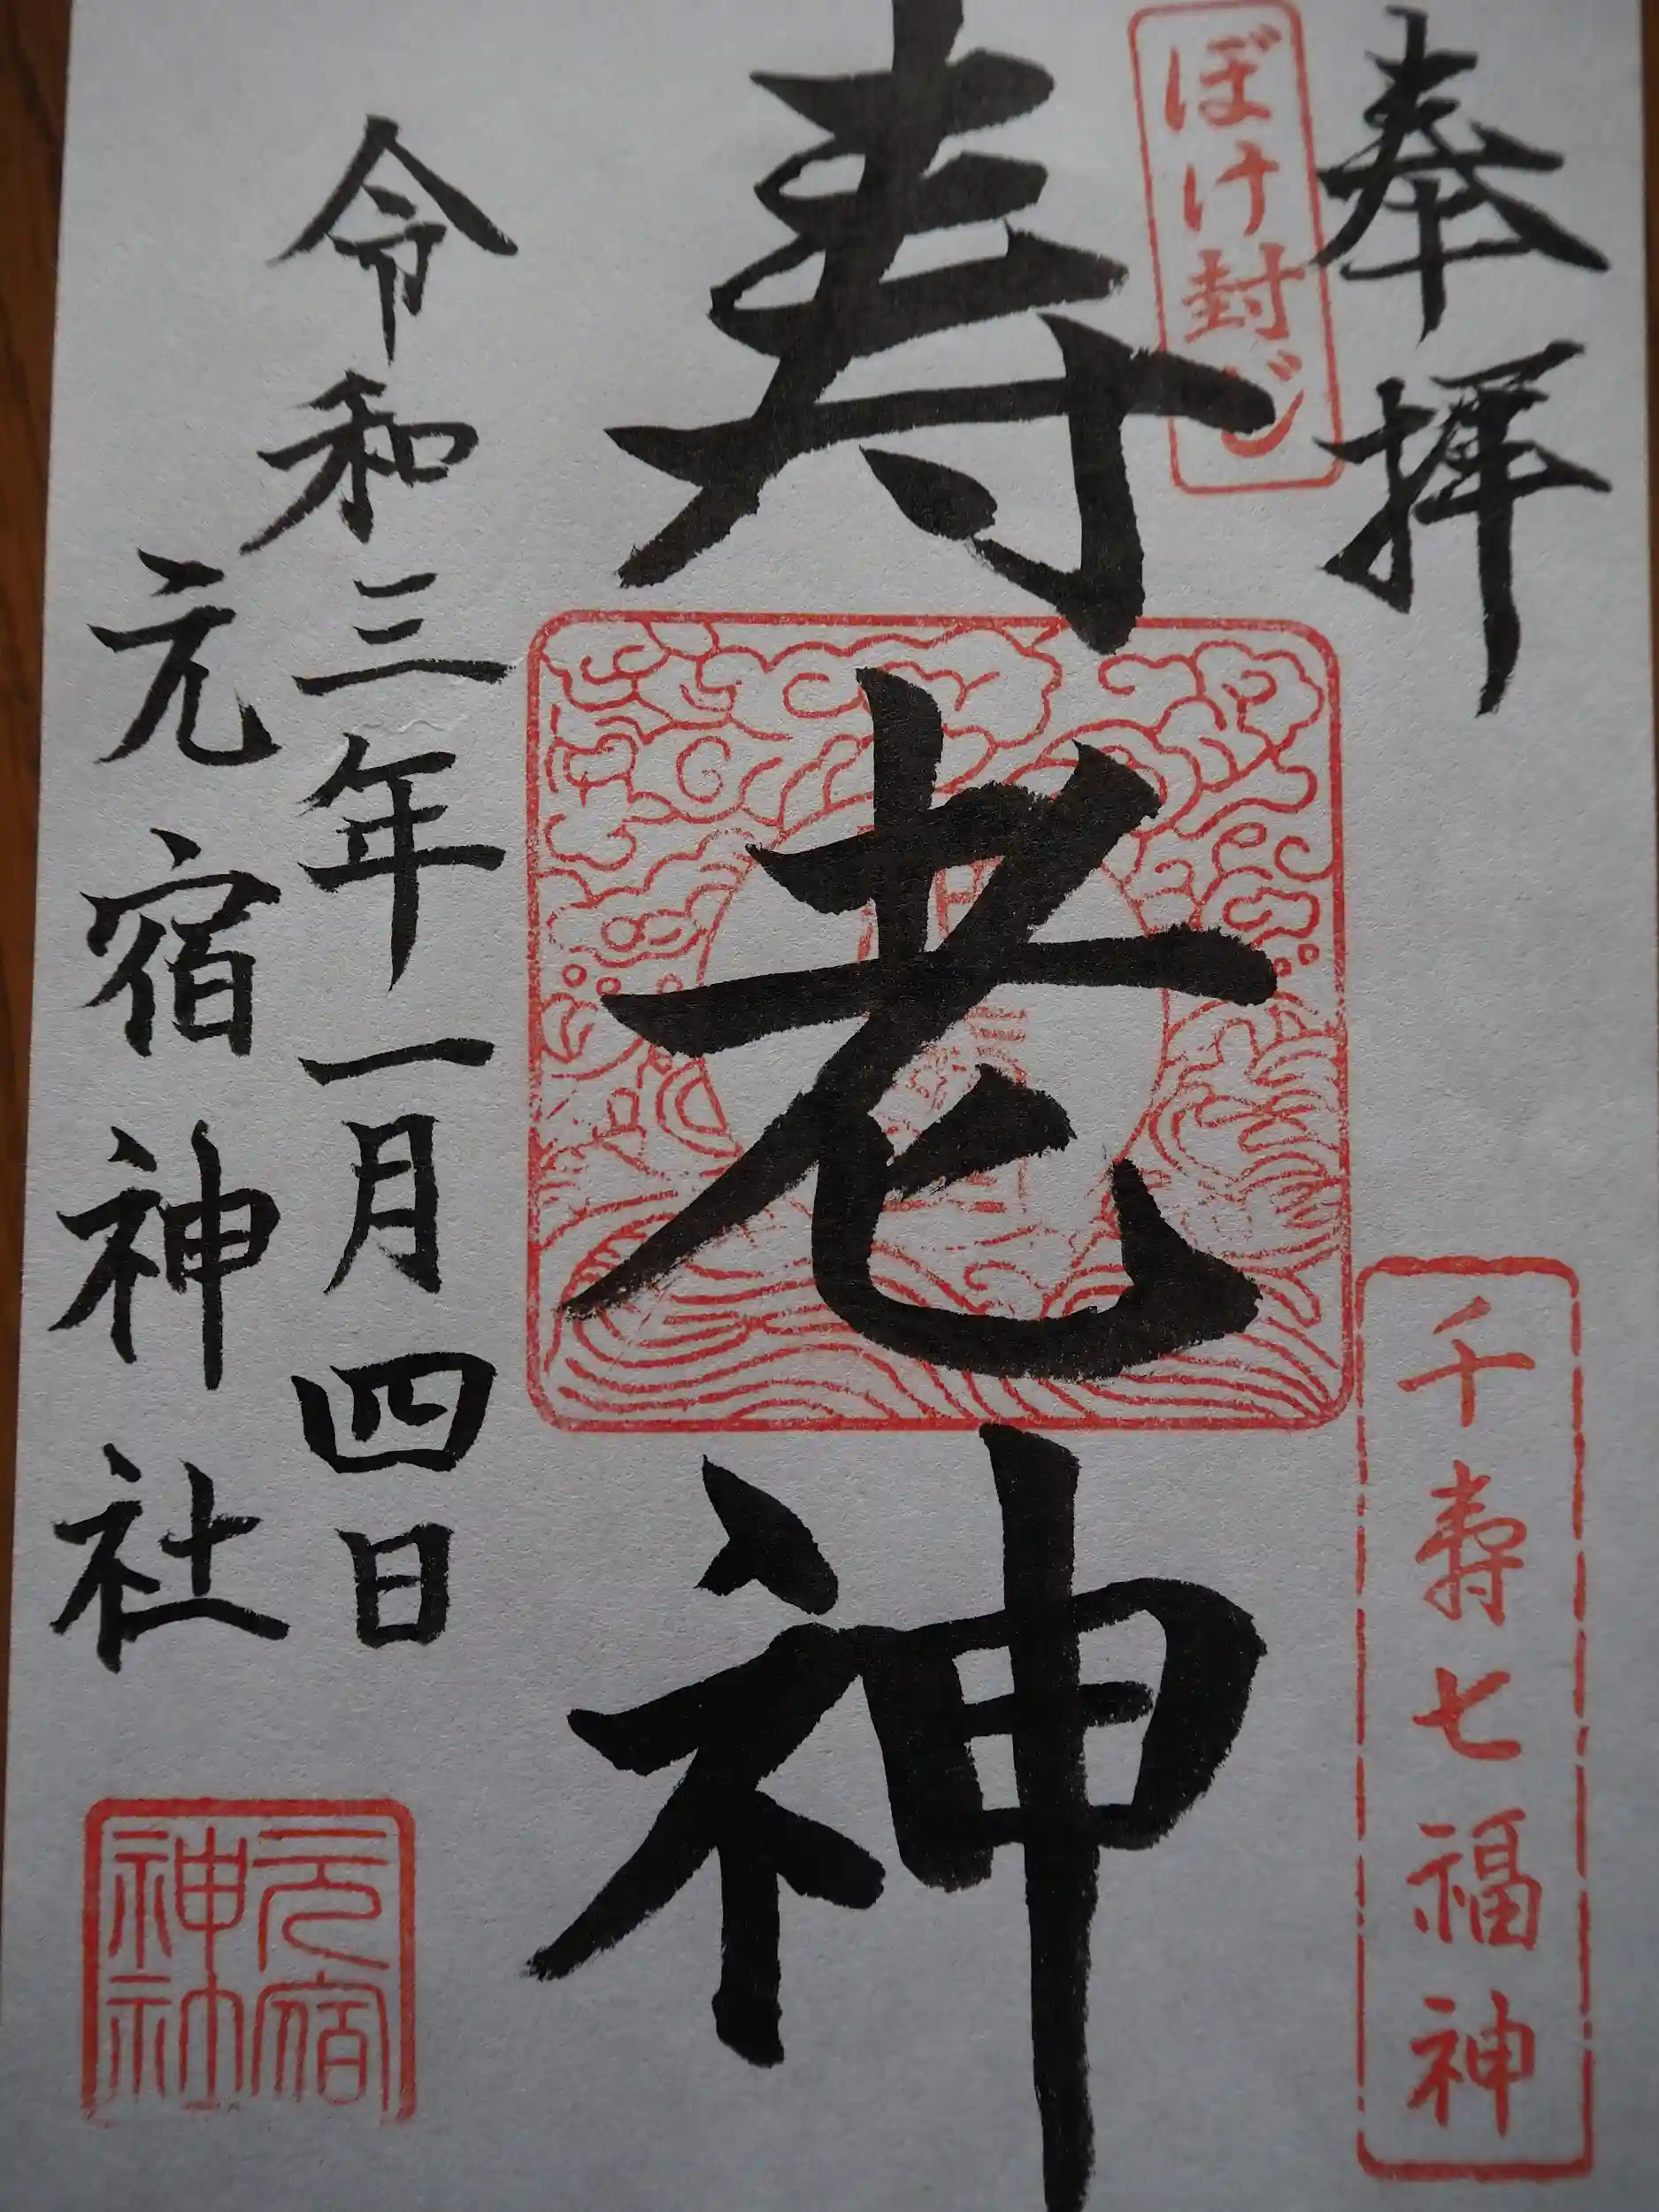 奉拝
ぼけ封じ
千寿七福神
寿老神
令和三年一月四日
元宿神社
元宿
神社